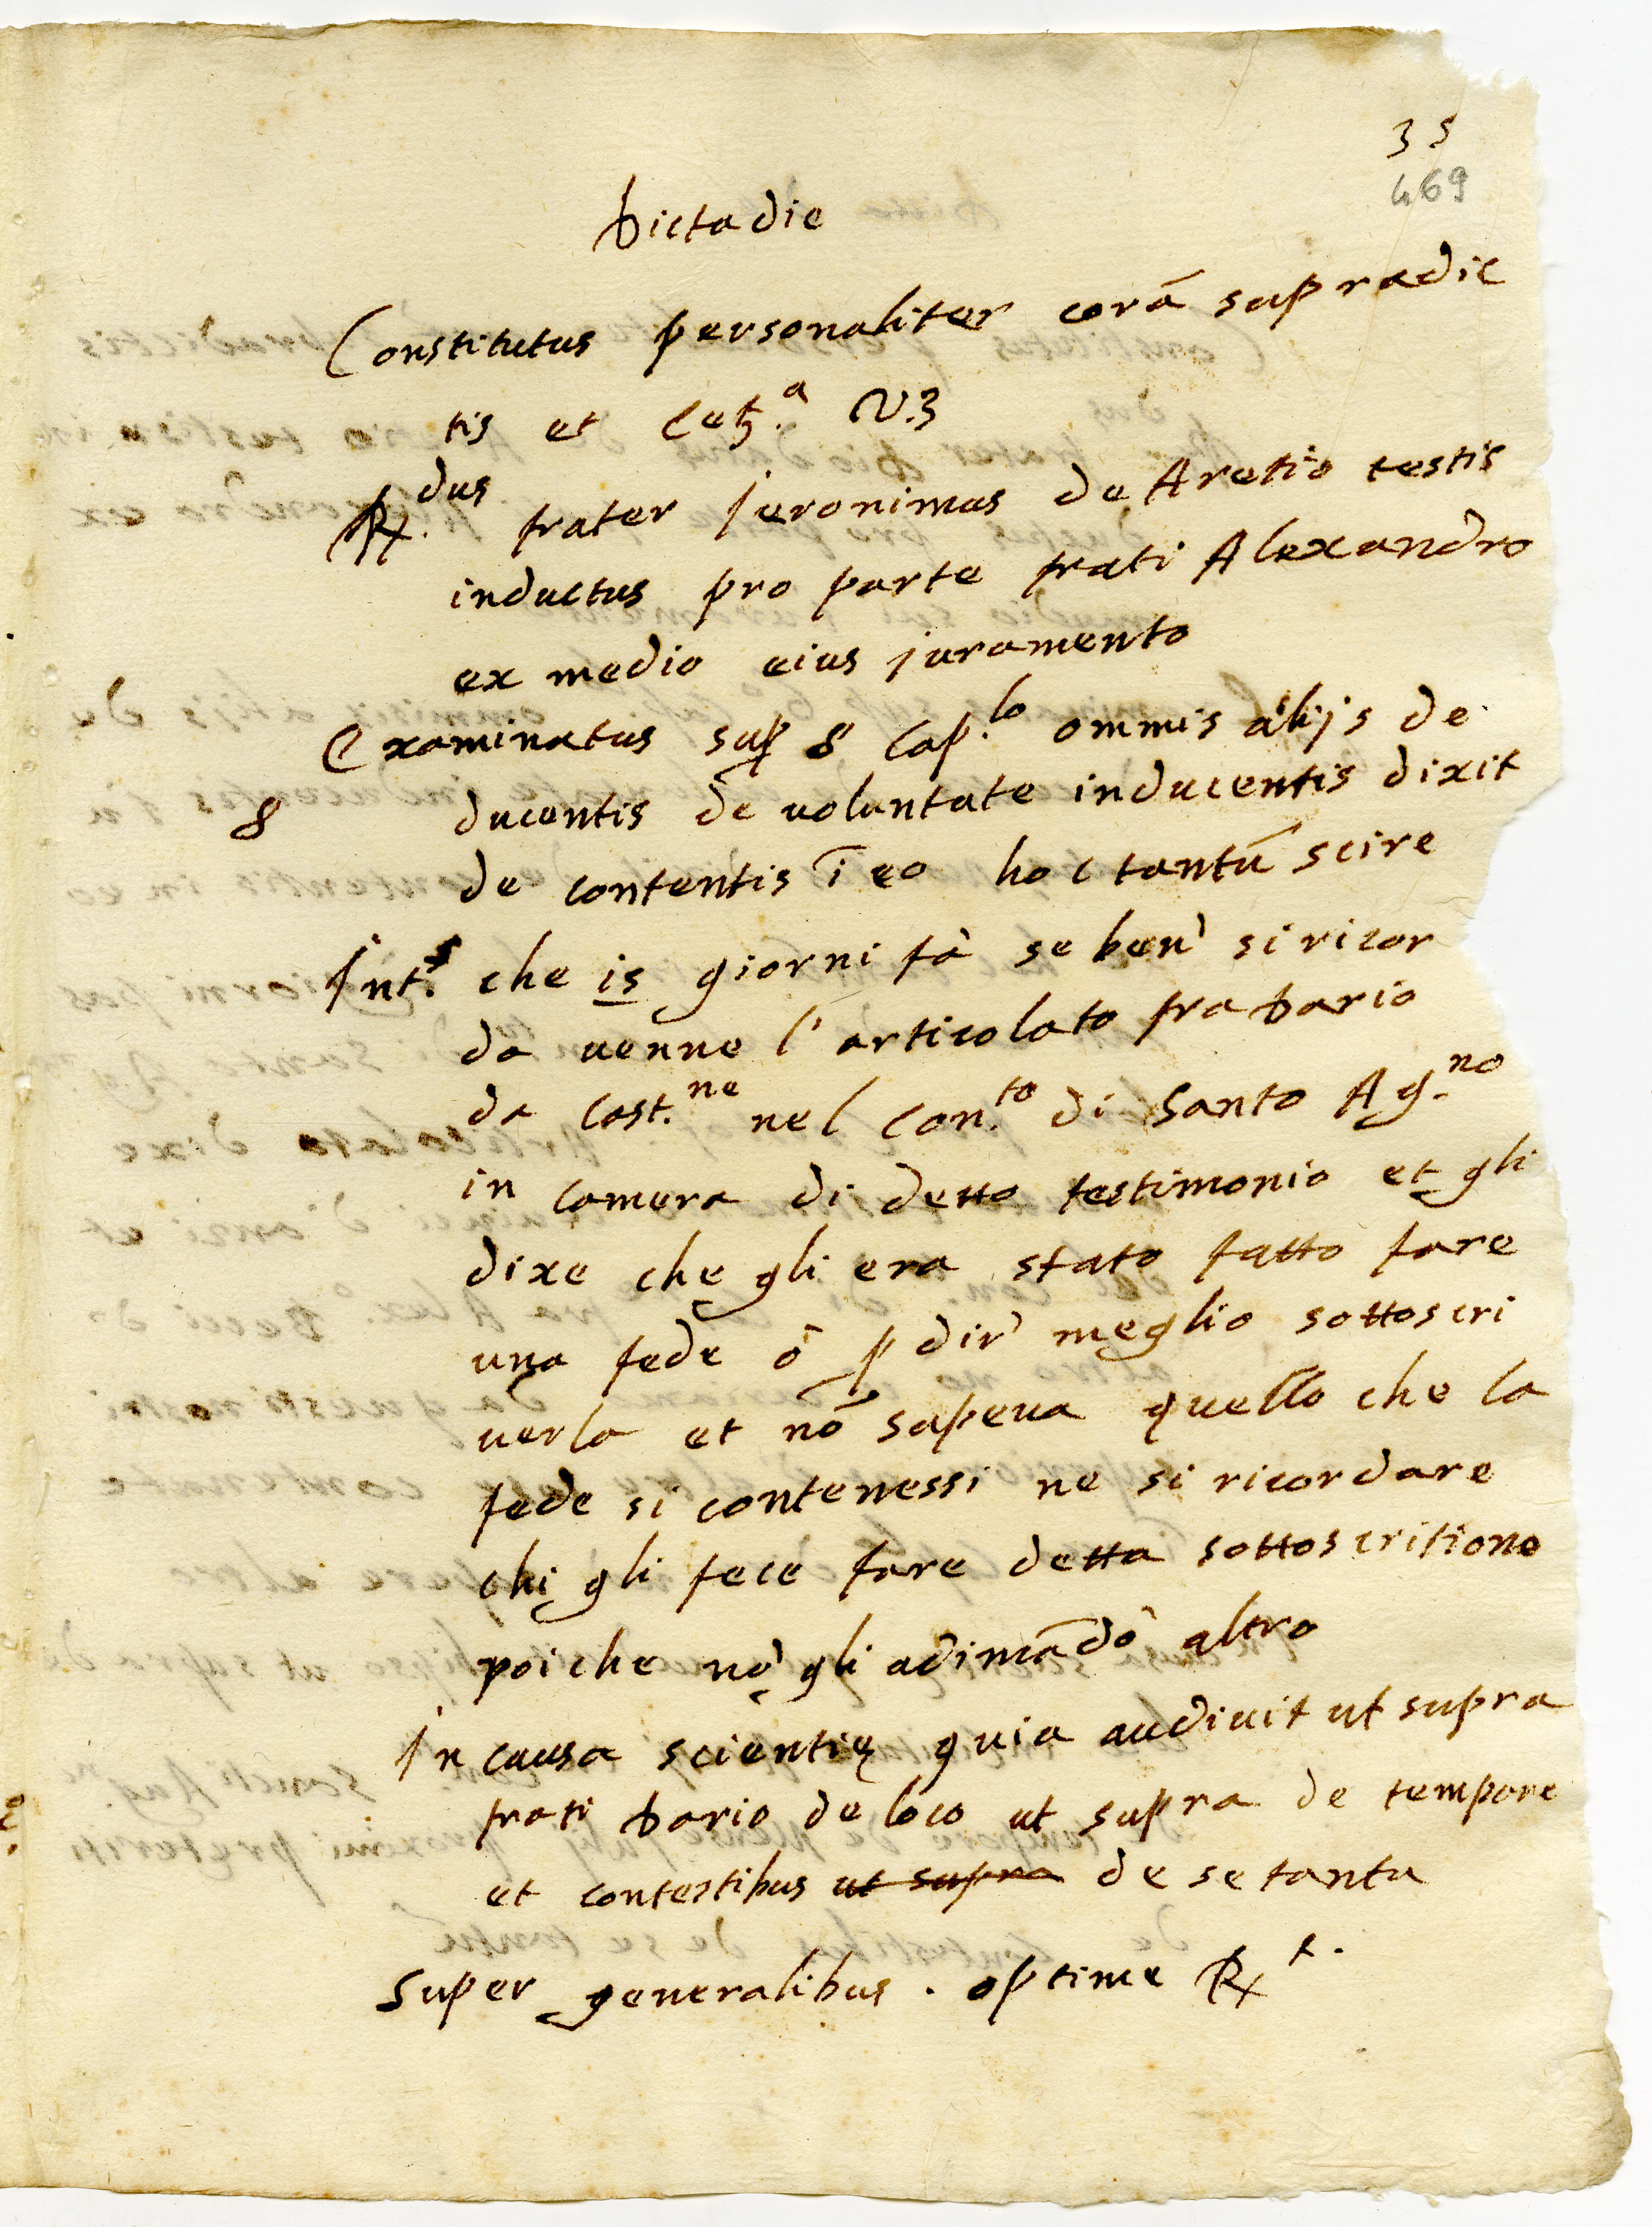 35
469
Dictadie
Constitutus personaliter corā supradic
tis et
R.dus frater Jeronimus de Aretio testis
inductus pro parte frati Alexandro
ex medio eius juramento
Examinatus sup 8 cap.lo ommis alijs de
8 ducentis de uoluntate inducentis dixit
de contentis ī eo hoc tantū scire
Int.s che 15 giorni fà se ben' si ricor
da uenne l'articolato fra Dario
da Cast.ne nel Con.to di Santo Ag.no
in camera di detto testimonio et gli
dixe che gli era stato fatto fare
una fede ò p dir' meglio sottoscri
uerla et nō sapeua quello che la
fede si contenessi ne si ricordare
chi gli fece fare detta sottoscritione
poi che nō gli adimādò altro
In causa scientię quia audiuit ut supra
frati Dario de loco ut supra de tempore
et contestibus ut supra de se tanta
Super generalibus . optime R.t.